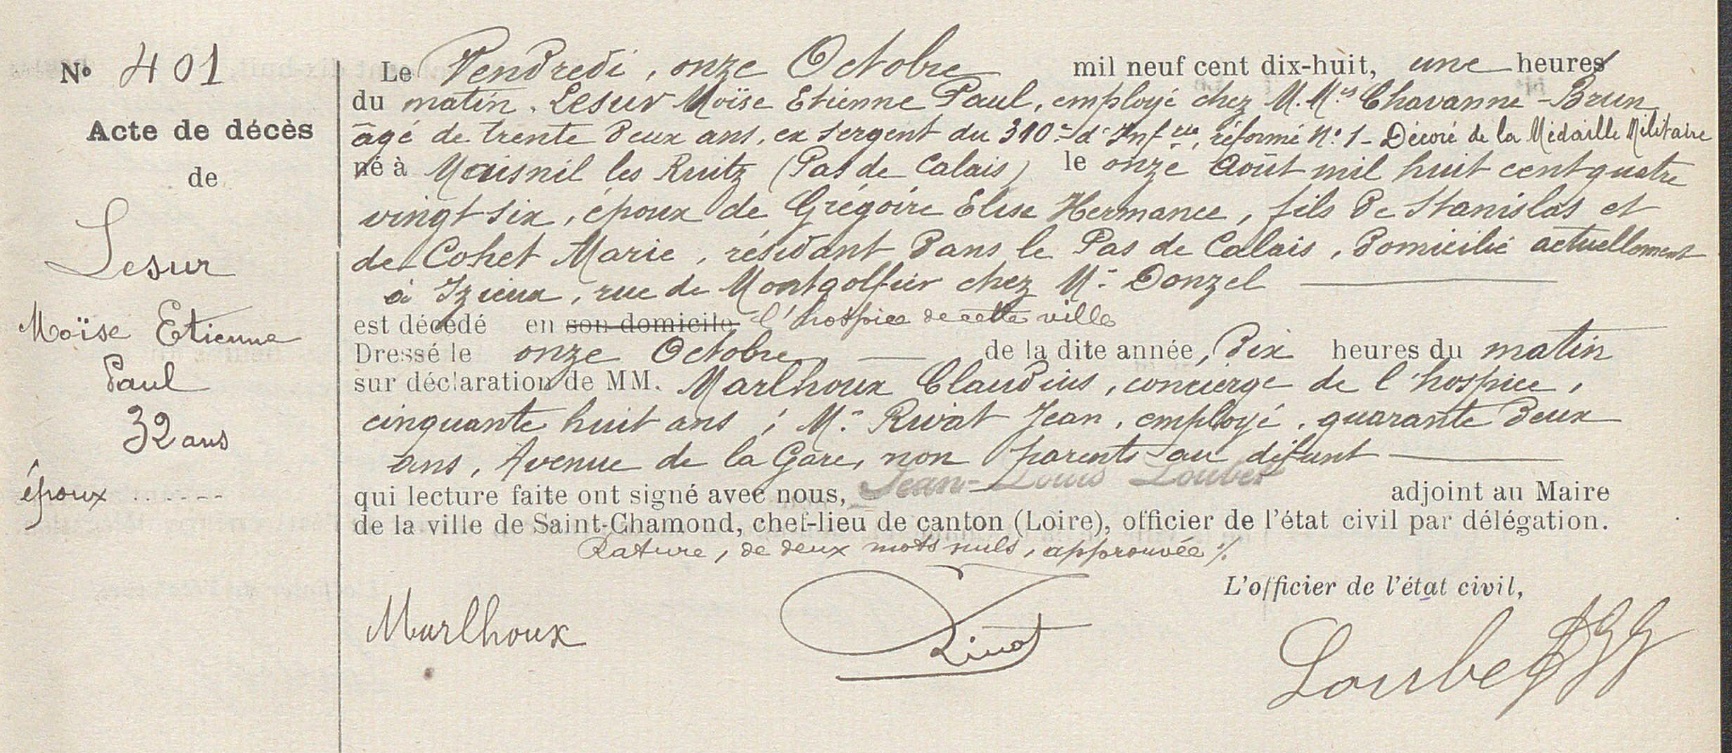 N° 401
Acte de décès
de
Lesur
Moïse Etienne
Paul
32 ans
époux .......
Le Vendredi, onze Octobre mil neuf cent dix-huit, une heures
du matin. Lesur Moïse Etienne Paul, employé chez M. Mes Chavanne-Brun
âgé de trente deux ans, ex sergent du 310e d'Infrie, réformé N° 1 - Décoré de la Médaille Militaire
né à Maisnil les Ruitz (Pas de Calais) le onze Août mil huit cent quatre
vingt six, époux de Grégoire Elise Hermance, fils de Stanislas et
de Cohet Marie, résidant dans le Pas de Calais, domicilié actuellement
à Izieux, rue de Montgolfier chez Mr Donzel
est décédé en son domicile l'hospice de cette ville
Dressé le onze Octobre de la dite année, dix heures du matin
sur déclaration de MM. Marlhoux Claudius, concierge de l'hospice,
cinquante huit ans ; Mr Rivat Jean, employé, quarante deux
ans, Avenue de la Gare, non parents au défunt
qui lecture faite ont signé avec nous, Jean-Louis Loubet adjoint au Maire
de la ville de Saint-Chamond, chef-lieu de canton (Loire), officier de l'état civil par délégation.
Rature, de deux mots nuls, approuvée ./.
L'officier de l'état civil,
Marlhoux
Rivat
Loubet